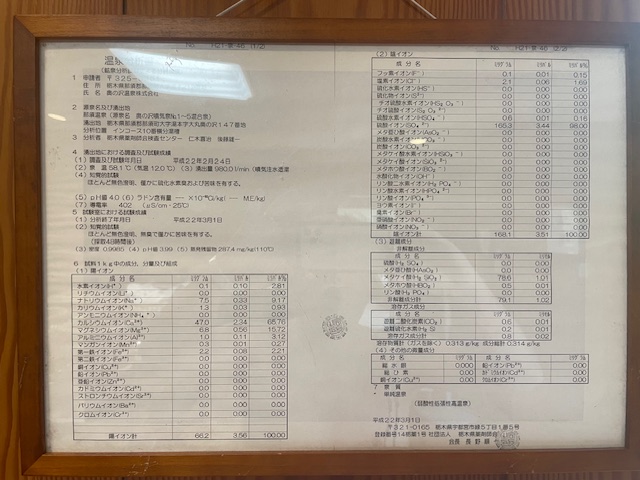 温泉
1 申請者 〒325-
住 所 栃木県那須郡
氏 名 奥の沢温泉株式会社
2 源泉名及び湧出地
那須温泉 (源泉名 奥の沢噴気泉№1~5混合泉)
湧出地 栃木県那須郡那須町大字湯本字大丸奥の沢147番地
3 分析位置 インコース10番積分湯槽
分析者 栃木県薬剤師会検査センター 仁木
4 湧出地における調査及び試験成績
(1) 調査及び試験年月日 平成22年2月24日
(2) 泉 温 58.1℃ (気温 12.0℃) (3) 湧出量 980.0 l/min
(4) 知覚的試験
ほとんど無色澄明、僅かに硫化水素臭および苦味を有する。
(5) pH値 4.0 (6) ラドン含有量 ― ×10⁻¹⁰Ci/kg( ― M.E/kg)
(7) 導電率 402 (μS/cm・25℃)
5 試験室における試験成績
(1) 分析終了年月日 平成22年3月1日
(2) 知覚的試験
ほとんど無色澄明、無臭で僅かに苦味を有する。
(採取48時間後)
(3) 密度 0.9985 (4) pH値 3.99 (5) 蒸発残留物 287.4 mg/kg(110℃)
6 試料1kg中の成分、分量及び組成
(1) 陽イオン
成 分 名 ミリグラム ミリバル ミリバル%
水素イオン(H⁺) 0.1 0.10 2.81
リチウムイオン(Li⁺) 0.0 0.00 0.00
ナトリウムイオン(Na⁺) 7.5 0.33 9.17
カリウムイオン(K⁺) 1.3 0.03 0.93
アンモニウムイオン(NH₄⁺) 0.0 0.00 0.00
カルシウムイオン(Ca²⁺) 47.0 2.34 65.76
マグネシウムイオン(Mg²⁺) 6.8 0.56 15.72
アルミニウムイオン(Al³⁺) 1.0 0.11 3.12
マンガンイオン(Mn²⁺) 0.3 0.01 0.27
第一鉄イオン(Fe²⁺) 2.2 0.08 2.21
第二鉄イオン(Fe³⁺) 0.0 0.00 0.00
銅イオン(Cu²⁺) 0.0 0.00 0.00
鉛イオン(Pb²⁺) 0.0 0.00 0.00
亜鉛イオン(Zn²⁺) 0.0 0.00 0.00
カドミウムイオン(Cd²⁺) 0.0 0.00 0.00
ストロンチウムイオン(Sr²⁺) 0.0 0.00 0.00
バリウムイオン(Ba²⁺) 0.0 0.00 0.00
クロムイオン(Cr³⁺) 0.0 0.00 0.00
陽イオン計 66.2 3.56 100.00
(2) 陰イオン
成 分 名 ミリグラム ミリバル ミリバル%
フッ素イオン(F⁻) 0.1 0.01 0.15
塩素イオン(Cl⁻) 2.1 1.69
硫化水素イオン(HS⁻) 0.0 0.00 0.00
硫化物イオン(S²⁻) 0.0 0.00 0.00
0.0 0.00 0.00
チオ硫酸イオン 0.0 0.00 0.00
硫酸水素イオン 0.6 0.01 0.16
硫酸イオン(SO₄²⁻) 165.3 3.44 98.00
メタ亜ひ酸イオン(AsO₂⁻) 0.0 0.00 0.00
炭酸水素イオン 0.0 0.00 0.00
炭酸イオン 0.0 0.00 0.00
メタケイ酸水素イオン(HSiO₃⁻) 0.0 0.00 0.00
メタケイ酸イオン(SiO₃²⁻) 0.0 0.00 0.00
メタホウ酸イオン(BO₂⁻) 0.0 0.00 0.00
水酸化物イオン(OH⁻) 0.0 0.00 0.00
リン酸二水素イオン(H₂PO₄⁻) 0.0 0.00 0.00
リン酸水素イオン(HPO₄²⁻) 0.0 0.00 0.00
リン酸イオン(PO₄³⁻) 0.0 0.00 0.00
ヨウ素イオン(I⁻) 0.0 0.00 0.00
臭素イオン(Br⁻) 0.0 0.00 0.00
亜硝酸イオン(NO₂⁻) 0.0 0.00 0.00
硝酸イオン(NO₃⁻) 0.0 0.00 0.00
陰イオン計 168.1 3.51 100.00
(3) 遊離成分
非解離成分
成 分 名 ミリグラム ミリモル
硫酸(H₂SO₄) 0.0 0.00
メタ亜ひ酸(HAsO₂) 0.0 0.00
メタケイ酸(H₂SiO₃) 78.6 1.01
メタホウ酸(HBO₂) 0.5 0.01
リン酸(H₃PO₄) 0.0 0.00
非解離成分計 79.1 1.02
溶存ガス成分
成 分 名 ミリグラム ミリモル
遊離二酸化炭素(CO₂) 0.2 0.01
遊離硫化水素(H₂S) 0.6 0.01
溶存ガス成分計 0.8 0.02
溶存物質計 (ガスを除く) 0.313 g/kg 成分総計 0.314 g/kg
(4) その他の微量成分
成 分 名 ミリグラム 成 分 名 ミリグラム
総 水 銀 0.000 鉛イオン(Pb²⁺) 0.00
総 ひ 素 0.00 カドミウムイオン(Cd²⁺) 0.00
銅イオン(Cu²⁺) 0.00 クロムイオン(Cr³⁺) 0.00
7 泉 質
単純温泉
(弱酸性低張性高温泉)
平成22年3月1日
〒321-0165 栃木県宇都宮市緑5丁目1番5号
登録番号14栃薬1号 社団法人 栃木県薬剤師会
会長 長 野 順 一